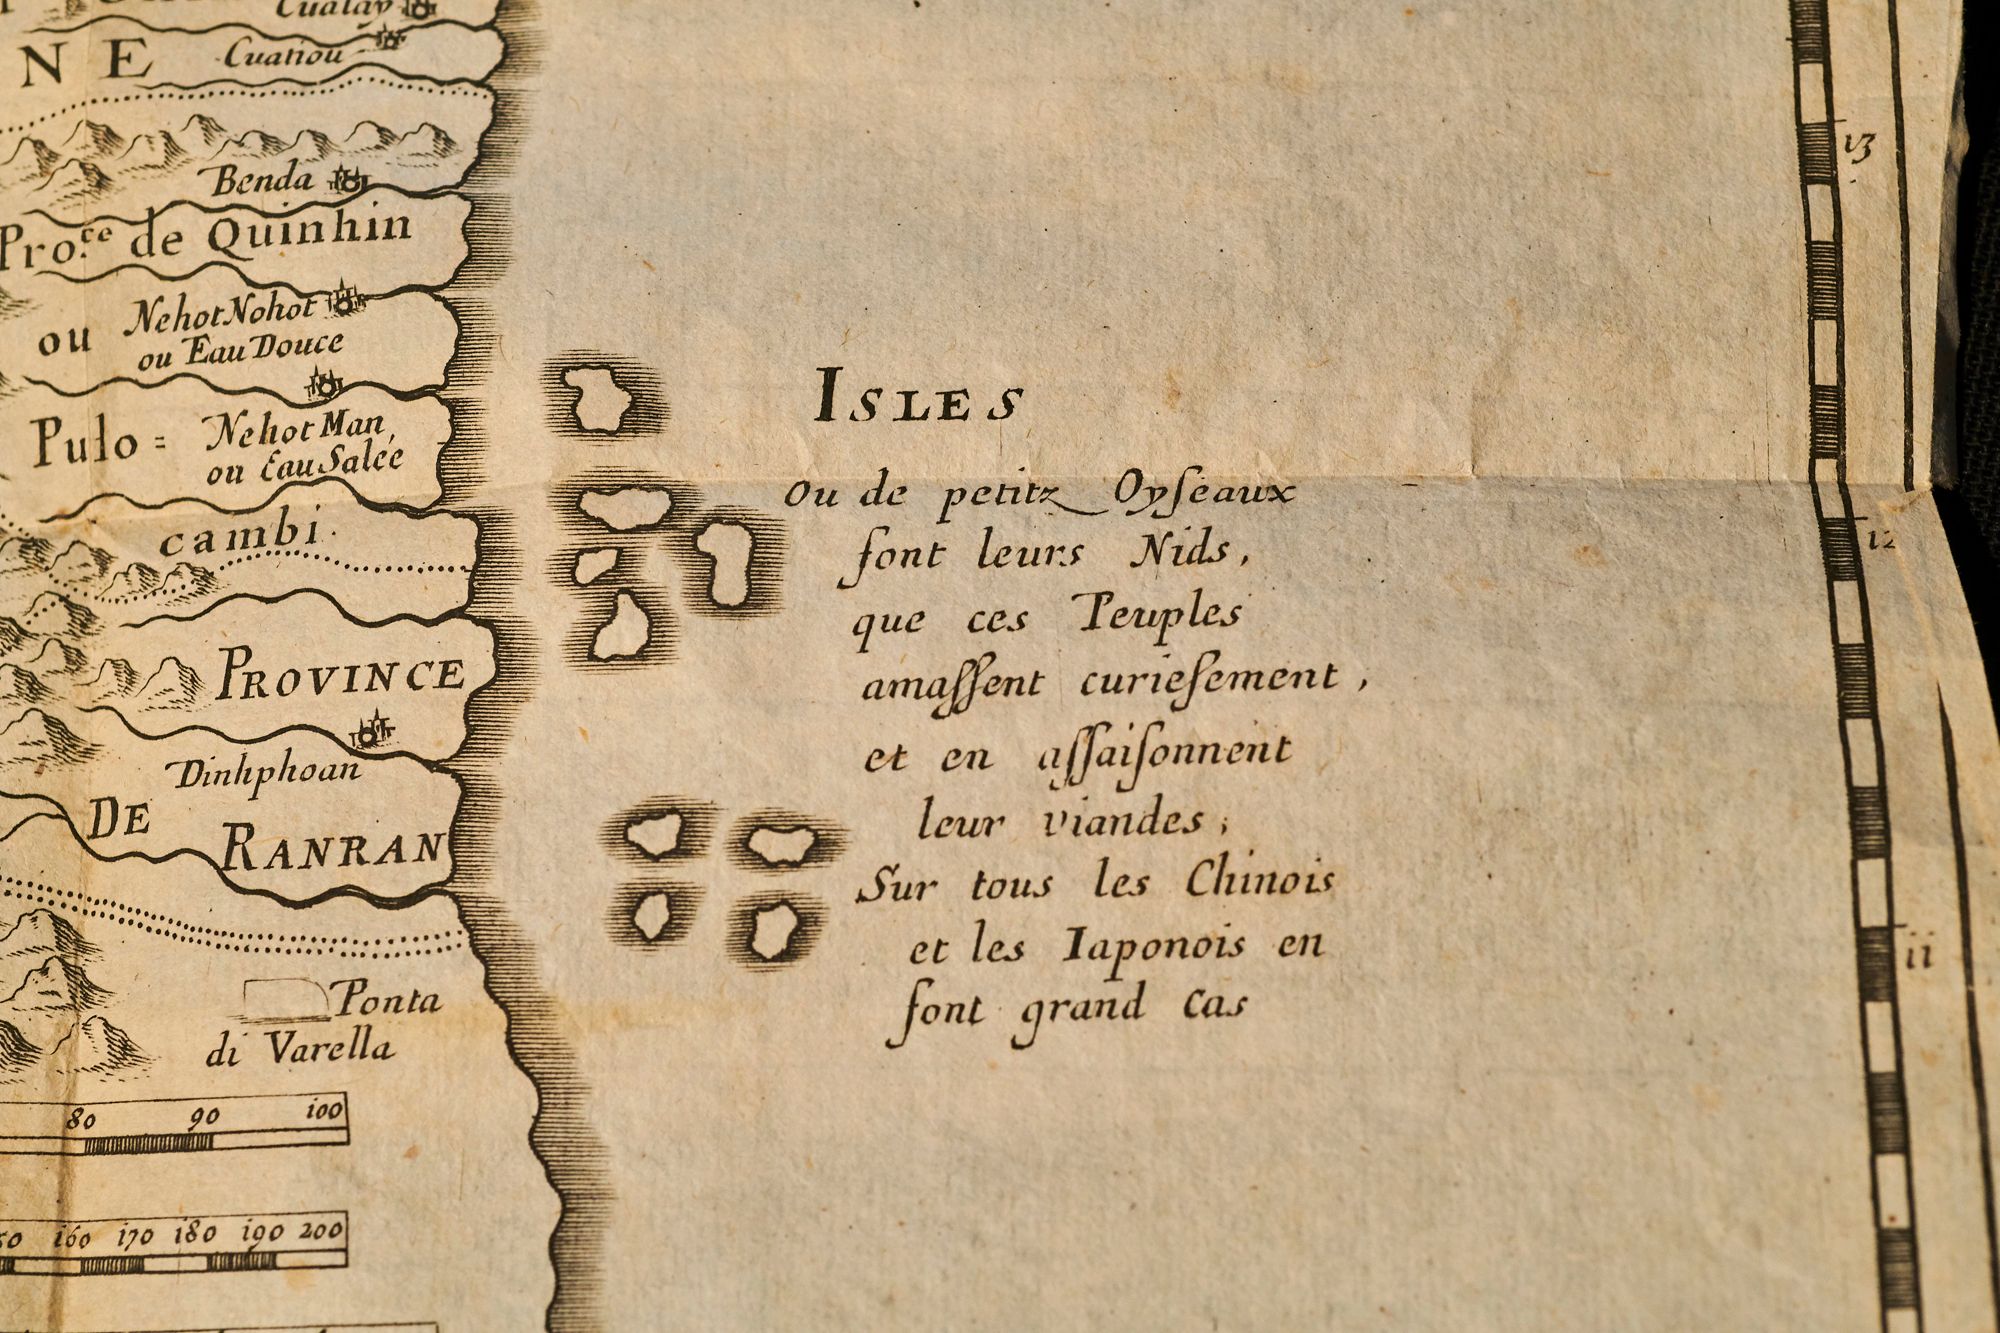 Cualay
NE
Cuatiou
Benda
Pro.ce de Quinhin
ou
Nehot Nohot
ou Eau Douce
Pulo =
Nehot Man,
ou Eau Salée
cambi.
PROVINCE
Dinhphoan
DE
RANRAN
Ponta
di Varella
80 90 100
160 170 180 190 200
ISLES
Ou de petitz Oyſeaux
font leurs Nids,
que ces Peuples
amaſſent curieſement,
et en aſſaiſonnent
leur viandes;
Sur tous les Chinois
et les Iaponois en
font grand cas
13
12
11